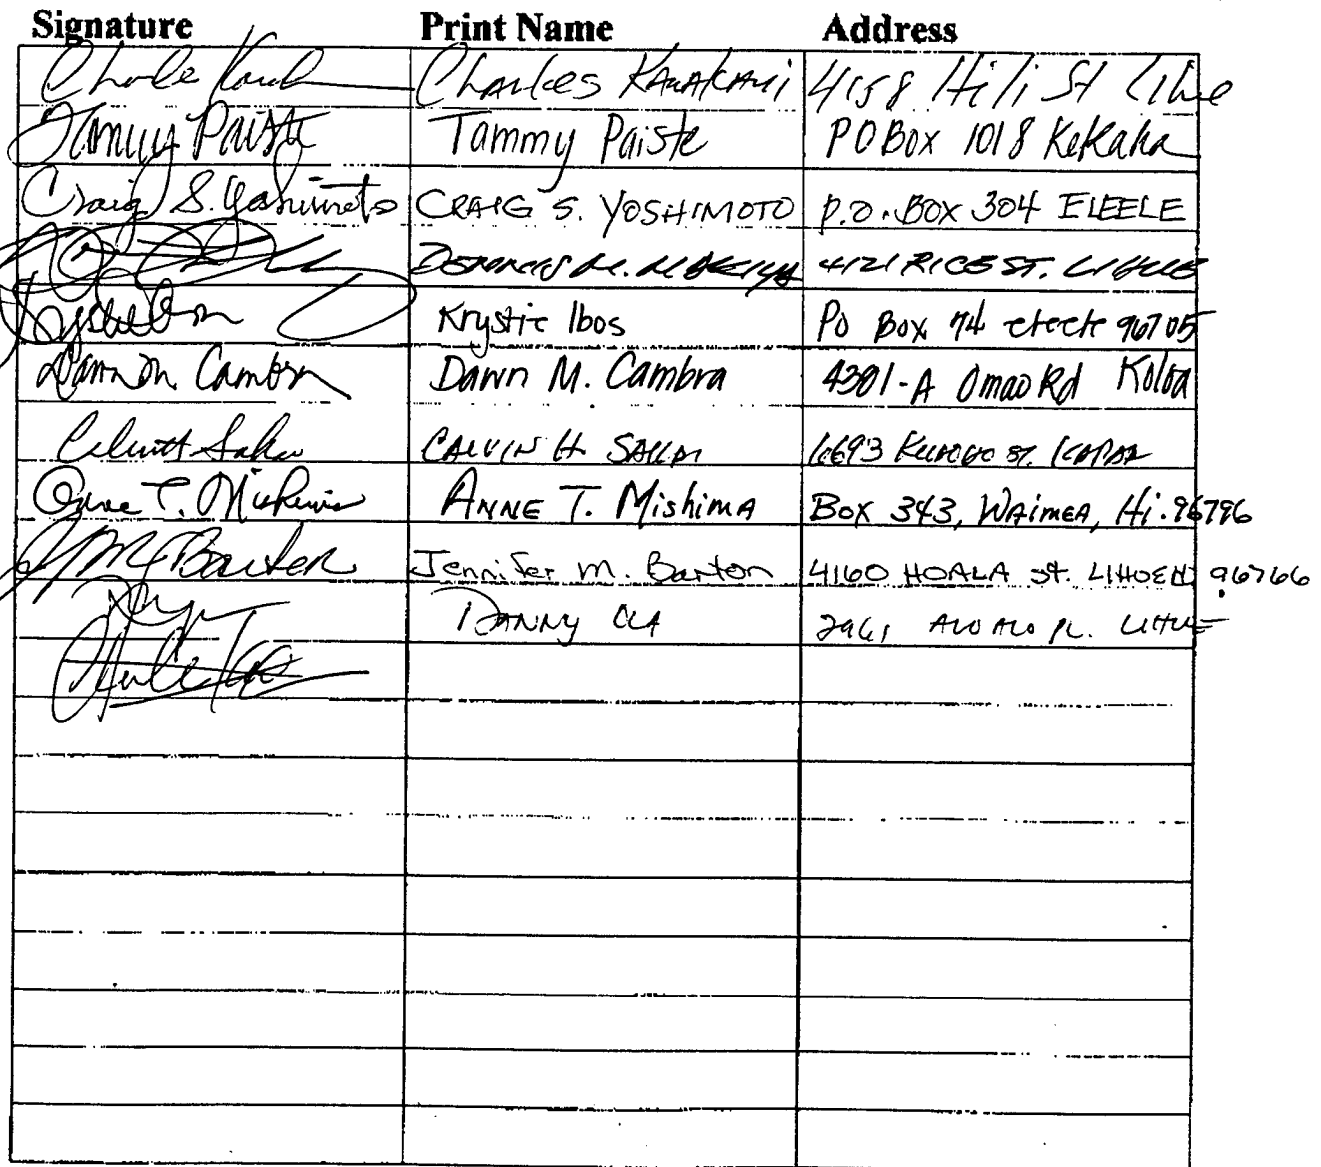 Signature Print Name Address
Charles Kawakami 4158 Hili St Lihue
Tammy Paiste Tammy Paiste PO Box 1018 Kekaha
Craig S. Yoshimoto CRAIG S. YOSHIMOTO P.O. BOX 304 ELEELE
4121 RICE ST. LIHUE
Krystie Ibos PO Box 74 eleele 96705
Dawn M. Cambra Dawn M. Cambra 4301-A Omao Rd Koloa
CALVIN H. St.
Anne T. Mishima ANNE T. Mishima Box 343, WAIMEA, Hi. 96796
Jennifer M. Barton 4160 HOALA St. 96766
DANNY 2961 PL. LIHUE